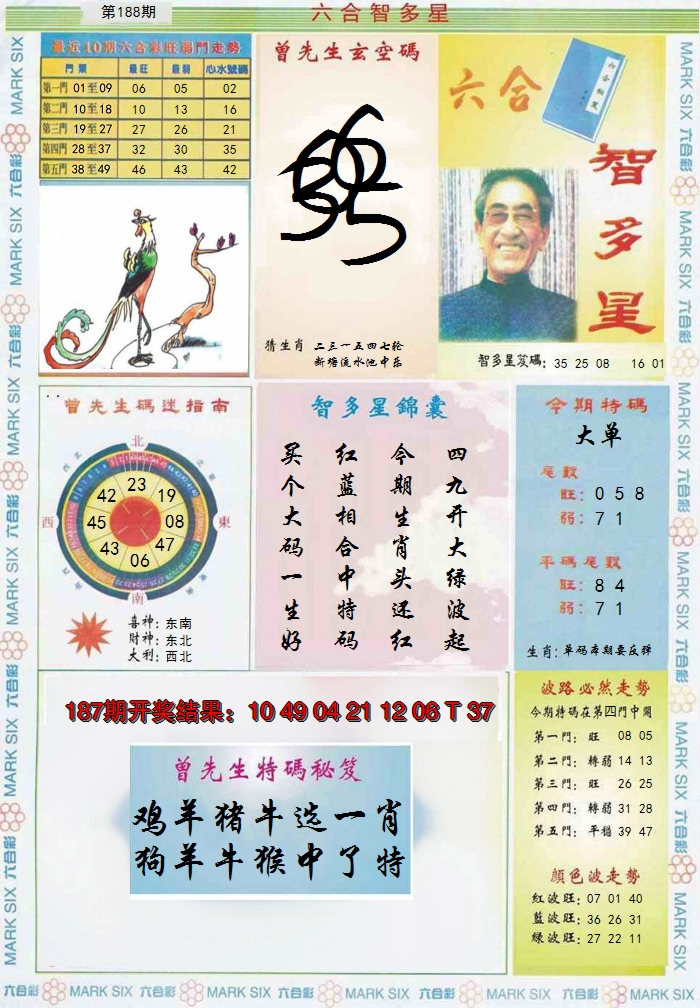 第188期
六合智多星
最近10期六合彩旺弱門走勢
門類 最旺 最弱 心水號碼
第一門 01至09 06 05 02
第二門 10至18 10 13 16
第三門 19至27 27 26 21
第四門 28至37 32 30 35
第五門 38至49 46 43 42
曾先生玄空碼
猜生肖 二三一五四七轮
新塘流水池中乐
六合
智多星
智多星笈碼: 35 25 08 16 01
曾先生碼迷指南
北
西
東
南
23
19
08
47
06
43
45
42
喜神: 东南
財神: 东北
大利: 西北
智多星錦囊
四九开大绿波起
今期生肖头还红
红蓝相合中特码
买个大码一生好
今期特碼
大单
尾数
旺: 0 5 8
弱: 7 1
平碼尾数
旺: 8 4
弱: 7 1
生肖: 单码本期要反弹
187期开奖结果: 10 49 04 21 12 06 T 37
曾先生特碼秘笈
鸡羊猪牛选一肖
狗羊牛猴中了特
波路必然走势
今期特碼在第四門中開
第一門: 旺 08 05
第二門: 轉弱 14 13
第三門: 旺 26 25
第四門: 轉弱 31 28
第五門: 平穩 39 47
顔色波走勢
红波旺: 07 01 40
藍波旺: 36 26 31
绿波旺: 27 22 11
MARK SIX 六合彩